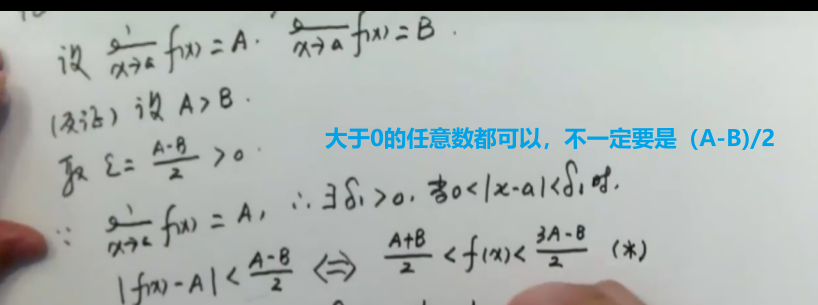 设 lim x→a f(x) = A. lim x→a f(x) = B.
(反证) 设 A > B.
大于0的任意数都可以，不一定要是（A-B)/2
取 ε = (A-B)/2 > 0.
∵ lim x→a f(x) = A, ∴ ∃ δ₁ > 0, 当 0 < |x-a| < δ₁ 时,
|f(x) - A| < (A-B)/2 ⇔ (A+B)/2 < f(x) < (3A-B)/2 (*)